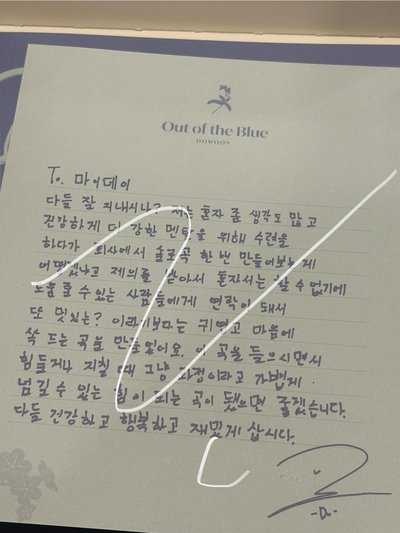 Out of the Blue
DOWOON
To. 마이데이
다들 잘 지내시나요 저는 혼자 좀 생각도 많고
건강하게 더 강한 멘탈을 위해 수련을
하다가 회사에서 솔로곡 한 번 만들어보는게
어떻겠냐고 제의를 받아서 혼자서는 할 수 없기에
도움 줄 수 있는 사람들에게 연락이 돼서
또 멋있는? 이라기보다는 귀엽고 마음에
쏙 드는 곡을 만들었어요. 이 곡을 들으시면서
힘들거나 지칠 때 그냥 과정이라고 가볍게
넘길 수 있는 힘이 되는 곡이 됐으면 좋겠습니다.
다들 건강하고 행복하고 재밌게 삽시다.
-D.-